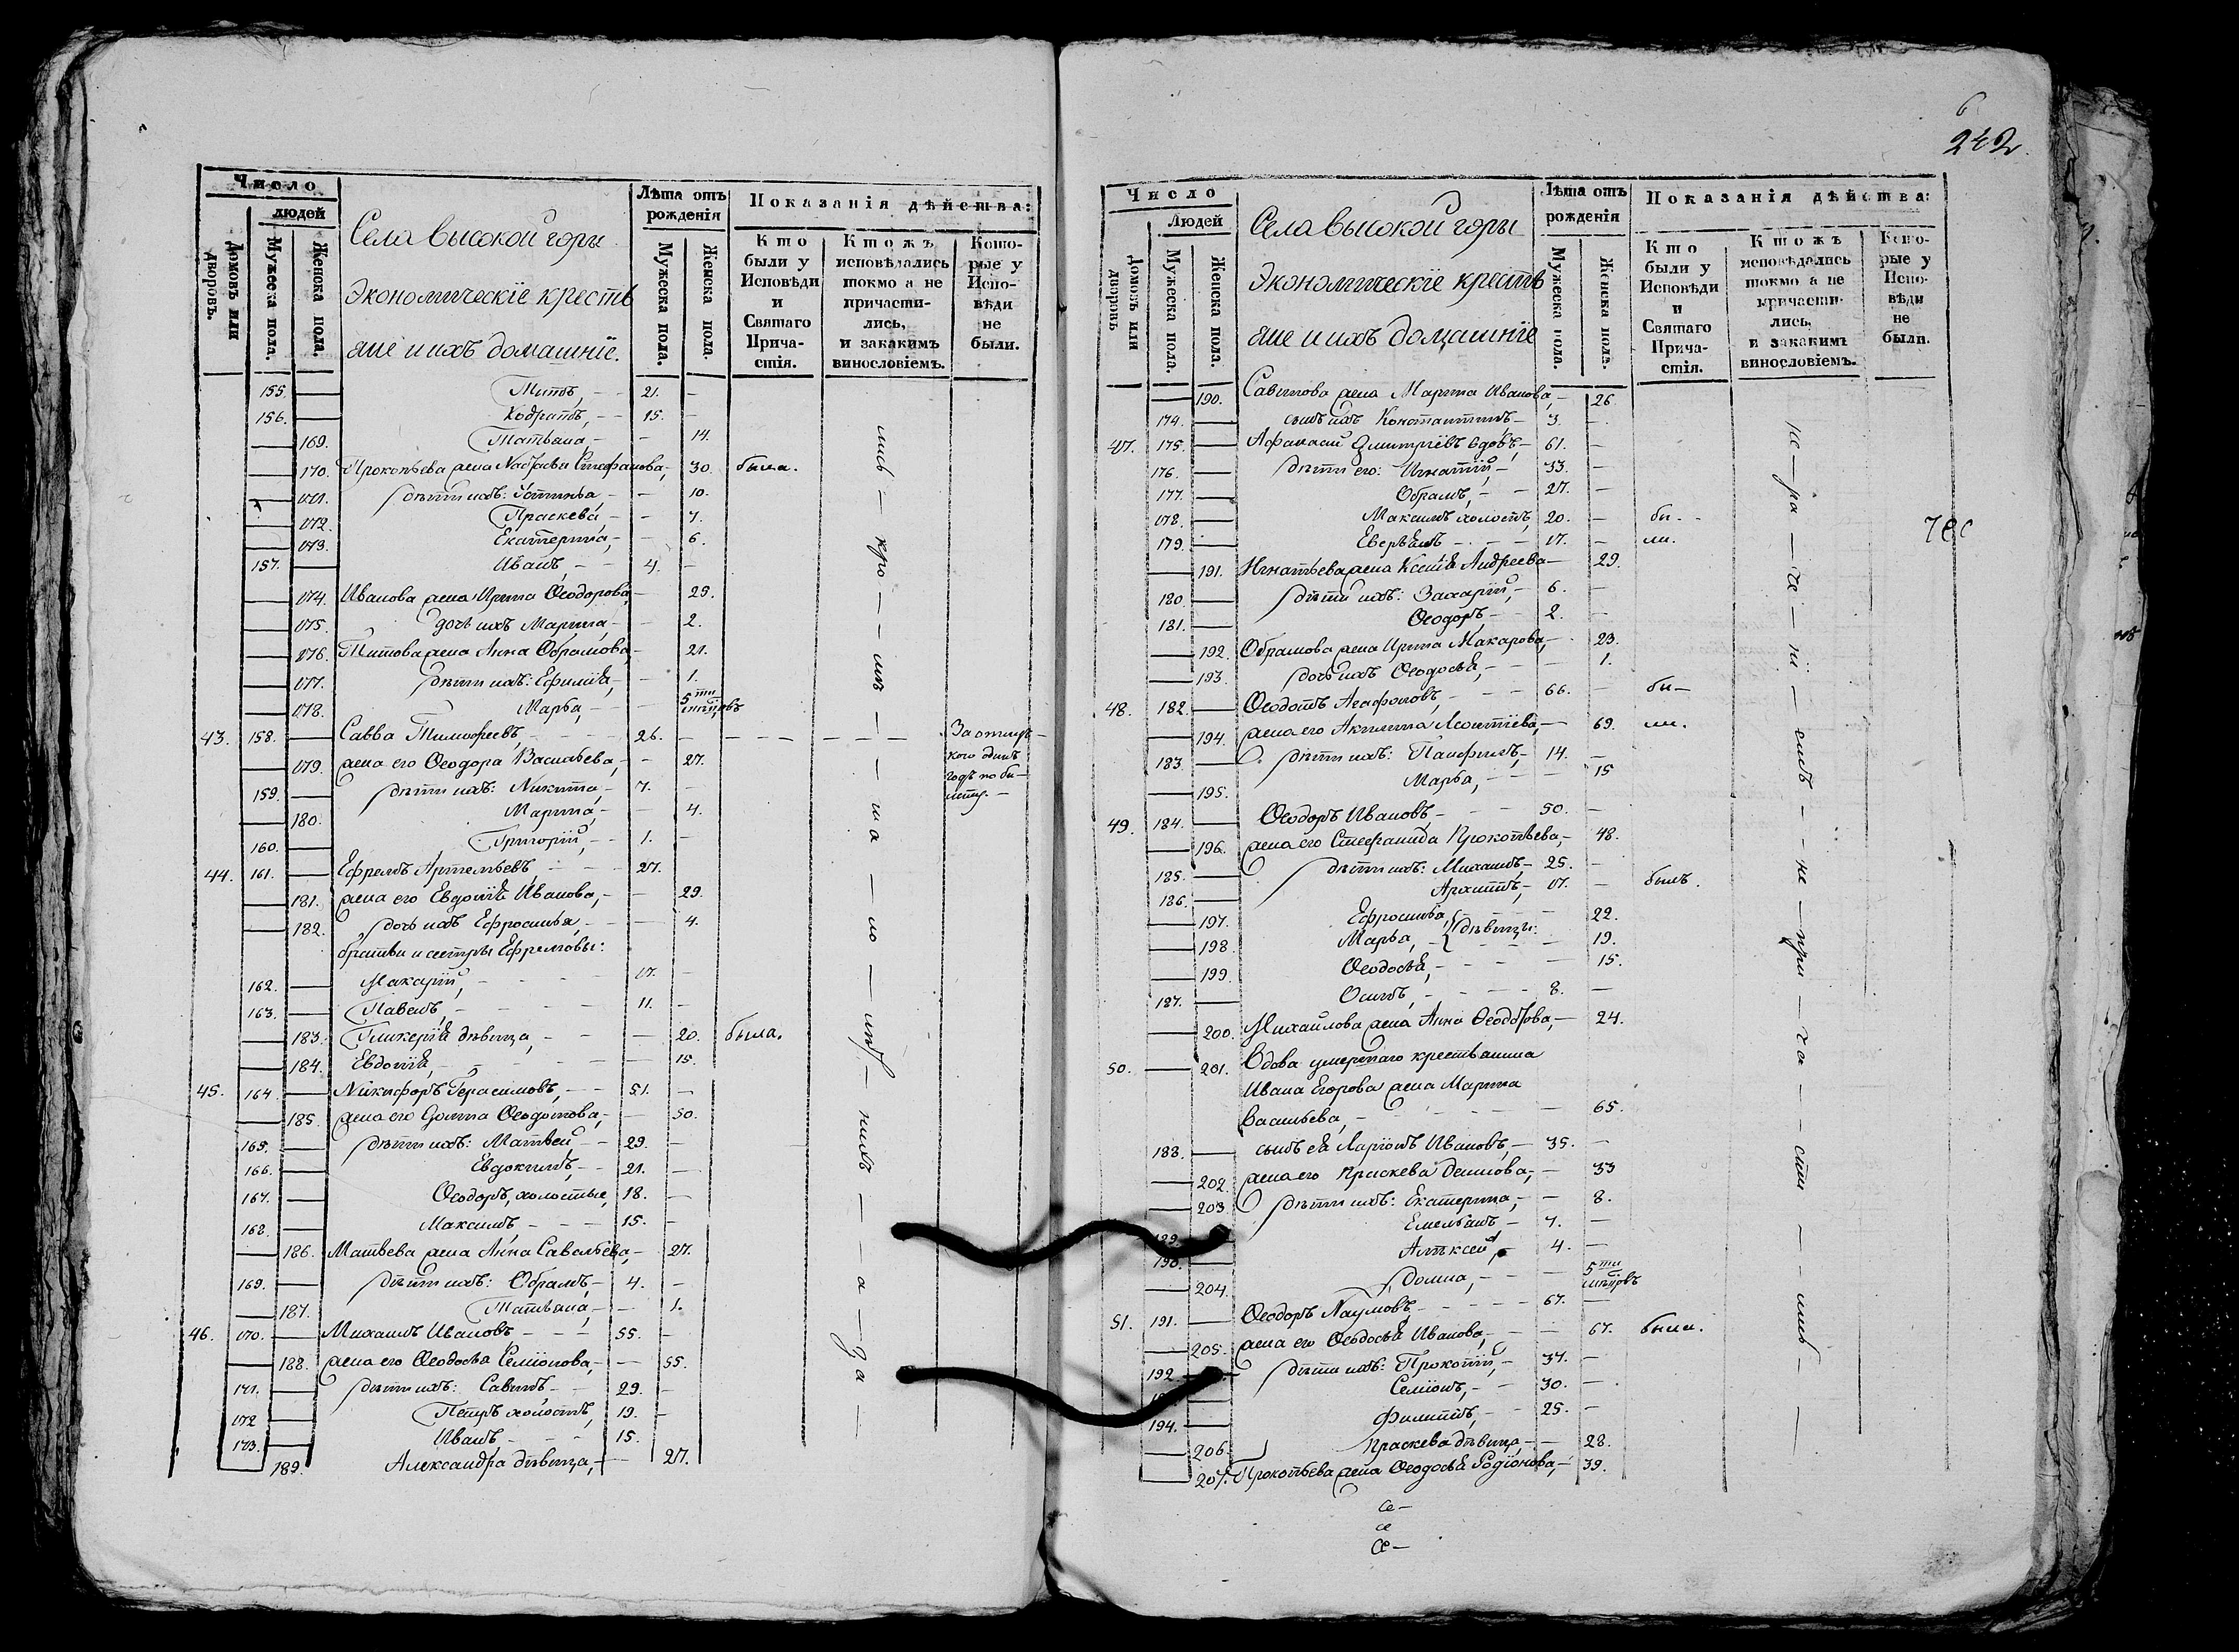 Число
людей
Домовъ или дворовъ.
Мужеска пола.
Женска пола.
Села высокой горы
Экономическіе кресть
яне и ихъ домашніе.
Лѣта отъ рожденія
Мужеска пола.
Женска пола.
Показанія дѣйства:
Кто были у Исповѣди и Святаго Прича-стія.
Ктожъ исповѣдались токмо а не причасти-лись, и закакимъ винословіемъ.
Кото-рые у Испо-вѣди не были.
155. Титъ, 21.
156. Кодратъ, 15.
169. Татьяна, 14.
170. Прокопьева жена Настасья Стефанова, 30. была.
171. дѣти ихъ: Устинья 10.
172. Праскева, 7.
173. Екатерина, 6.
157. Иванъ, 4.
174. Иванова жена Ирина Ѳеодорова, 29.
175. дочь ихъ Марина, 2.
176. Титова жена Анна Обрамова, 21.
177. дѣти ихъ: Ефимія, 1.
178. Марья, 5ти мѣсцовъ
43. 158. Савва Тимофеевъ, 26. За отлуч-
кою одинъ
годъ не бы-
179. жена его Ѳеодора Васильева, 27.
159. дѣти ихъ: Никита, 7.
180. Марина, 4.
160. Григорій, 1.
44. 161. Ефремъ Артемьевъ, 27.
181. жена его Евдокія Иванова, 29.
182. дочь ихъ Ефросинья, 4.
братья и сестры Ефремовы:
162. Макарій, 17.
163. Павелъ, 11.
183. Гликерія дѣвица, 20. была.
184. Евдокія, 15.
45. 164. Никифоръ Герасимовъ, 51.
185. жена его Домна Ѳеодотова, 50.
165. дѣти ихъ: Матвей 29.
166. Евдокимъ, 21.
167. Ѳеодоръ, холостые, 18.
168. Максимъ 15.
186. Матвева жена Анна Савельева, 27.
169. дѣти ихъ: Обрамъ, 4.
187. Татьяна, 1.
46. 170. Михаилъ Ивановъ, 55.
188. жена его Ѳеодосья Семіонова, 55.
171. дѣти ихъ: Савинъ, 29.
172 Петръ холостъ, 19.
173. Иванъ 15.
189. Александра дѣвица, 27.
242
Число
Людей
Домовъ или дворовъ
Мужеска пола.
Женска пола.
Села высокой горы
Экономическіе кресть
яне и ихъ домашніе
Лѣта отъ рожденія
Мужеска пола.
Женска пола.
Показанія дѣйства:
Кто были у Исповѣди и Святаго Прича-стія.
Ктожъ исповѣдались токмо а не причасти-лись, и закакимъ винословіемъ.
Кото-рые у Испо-вѣди не были.
190. Савинова жена Марина Иванова, 26
174. сынъ ихъ Константинъ 3.
47. 175. Афанасій Дмитріевъ вдовъ, 61.
176. дѣти его: Игнатій, 33.
177. Обрамъ, 27.
178. Максимъ холостъ, 20. бы-
179. 17. ли.
191. Игнатьева жена Ксенія Андреева 29.
180. дѣти ихъ: Захарій, 6.
181. Ѳеодоръ, 2.
192. Обрамова жена Ирина Макарова, 23.
193. дочь ихъ Ѳеодосья, 1.
48. 182. Ѳеодотъ Агафоновъ, 66. бы-
194. жена его Акилина Леонтіева, 69. ли.
183. дѣти ихъ: Панфилъ, 14.
195. Марья, 15
49. 184. Ѳеодоръ Ивановъ, 50.
196. жена его Стефанида Прокопьева, 48.
185. дѣти ихъ: Михаилъ, 25.
186. Архипъ, 17. былъ.
197. Ефросинья, 22.
дѣвицы
198. Марья, 19.
199. Ѳеодосья, 15.
187. Осипъ, 8.
200. Михаилова жена Анна Ѳеодорова, 24.
50. 201. Вдова умершаго крестьянина
Ивана Егорова жена Марина
Васильева, 65.
188. сынъ ея Ларіонъ Ивановъ, 35.
202. жена его Праскева Денисова, 33
203 дѣти ихъ: Екатерина, 8.
189. Емельянъ 7.
190. Алексей, 4.
204. Домна, 5ти мѣсцовъ
51. 191. Ѳеодоръ Наумовъ, 67.
205. жена его Ѳеодосья Иванова, 67. были.
192. дѣти ихъ: Прокопій, 37.
Семіонъ, 30.
194. Филиппъ, 25.
206. Праскева дѣвица, 28.
207. Прокопьева жена Ѳеодосья Родіонова, 39.